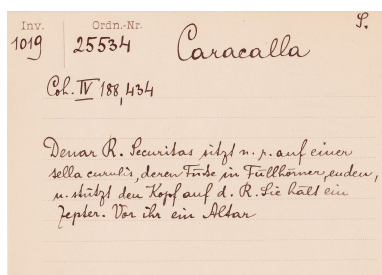 Inv. Ordn.-Nr. S.
1019 25534 Caracalla
Coh. IV 188,434
Denar R. Securitas sitzt n. r. auf einer
sella curulis, deren Füße in Füllhörner, enden,
u. stützt den Kopf auf d. R. Sie hält ein
Zepter. Vor ihr ein Altar